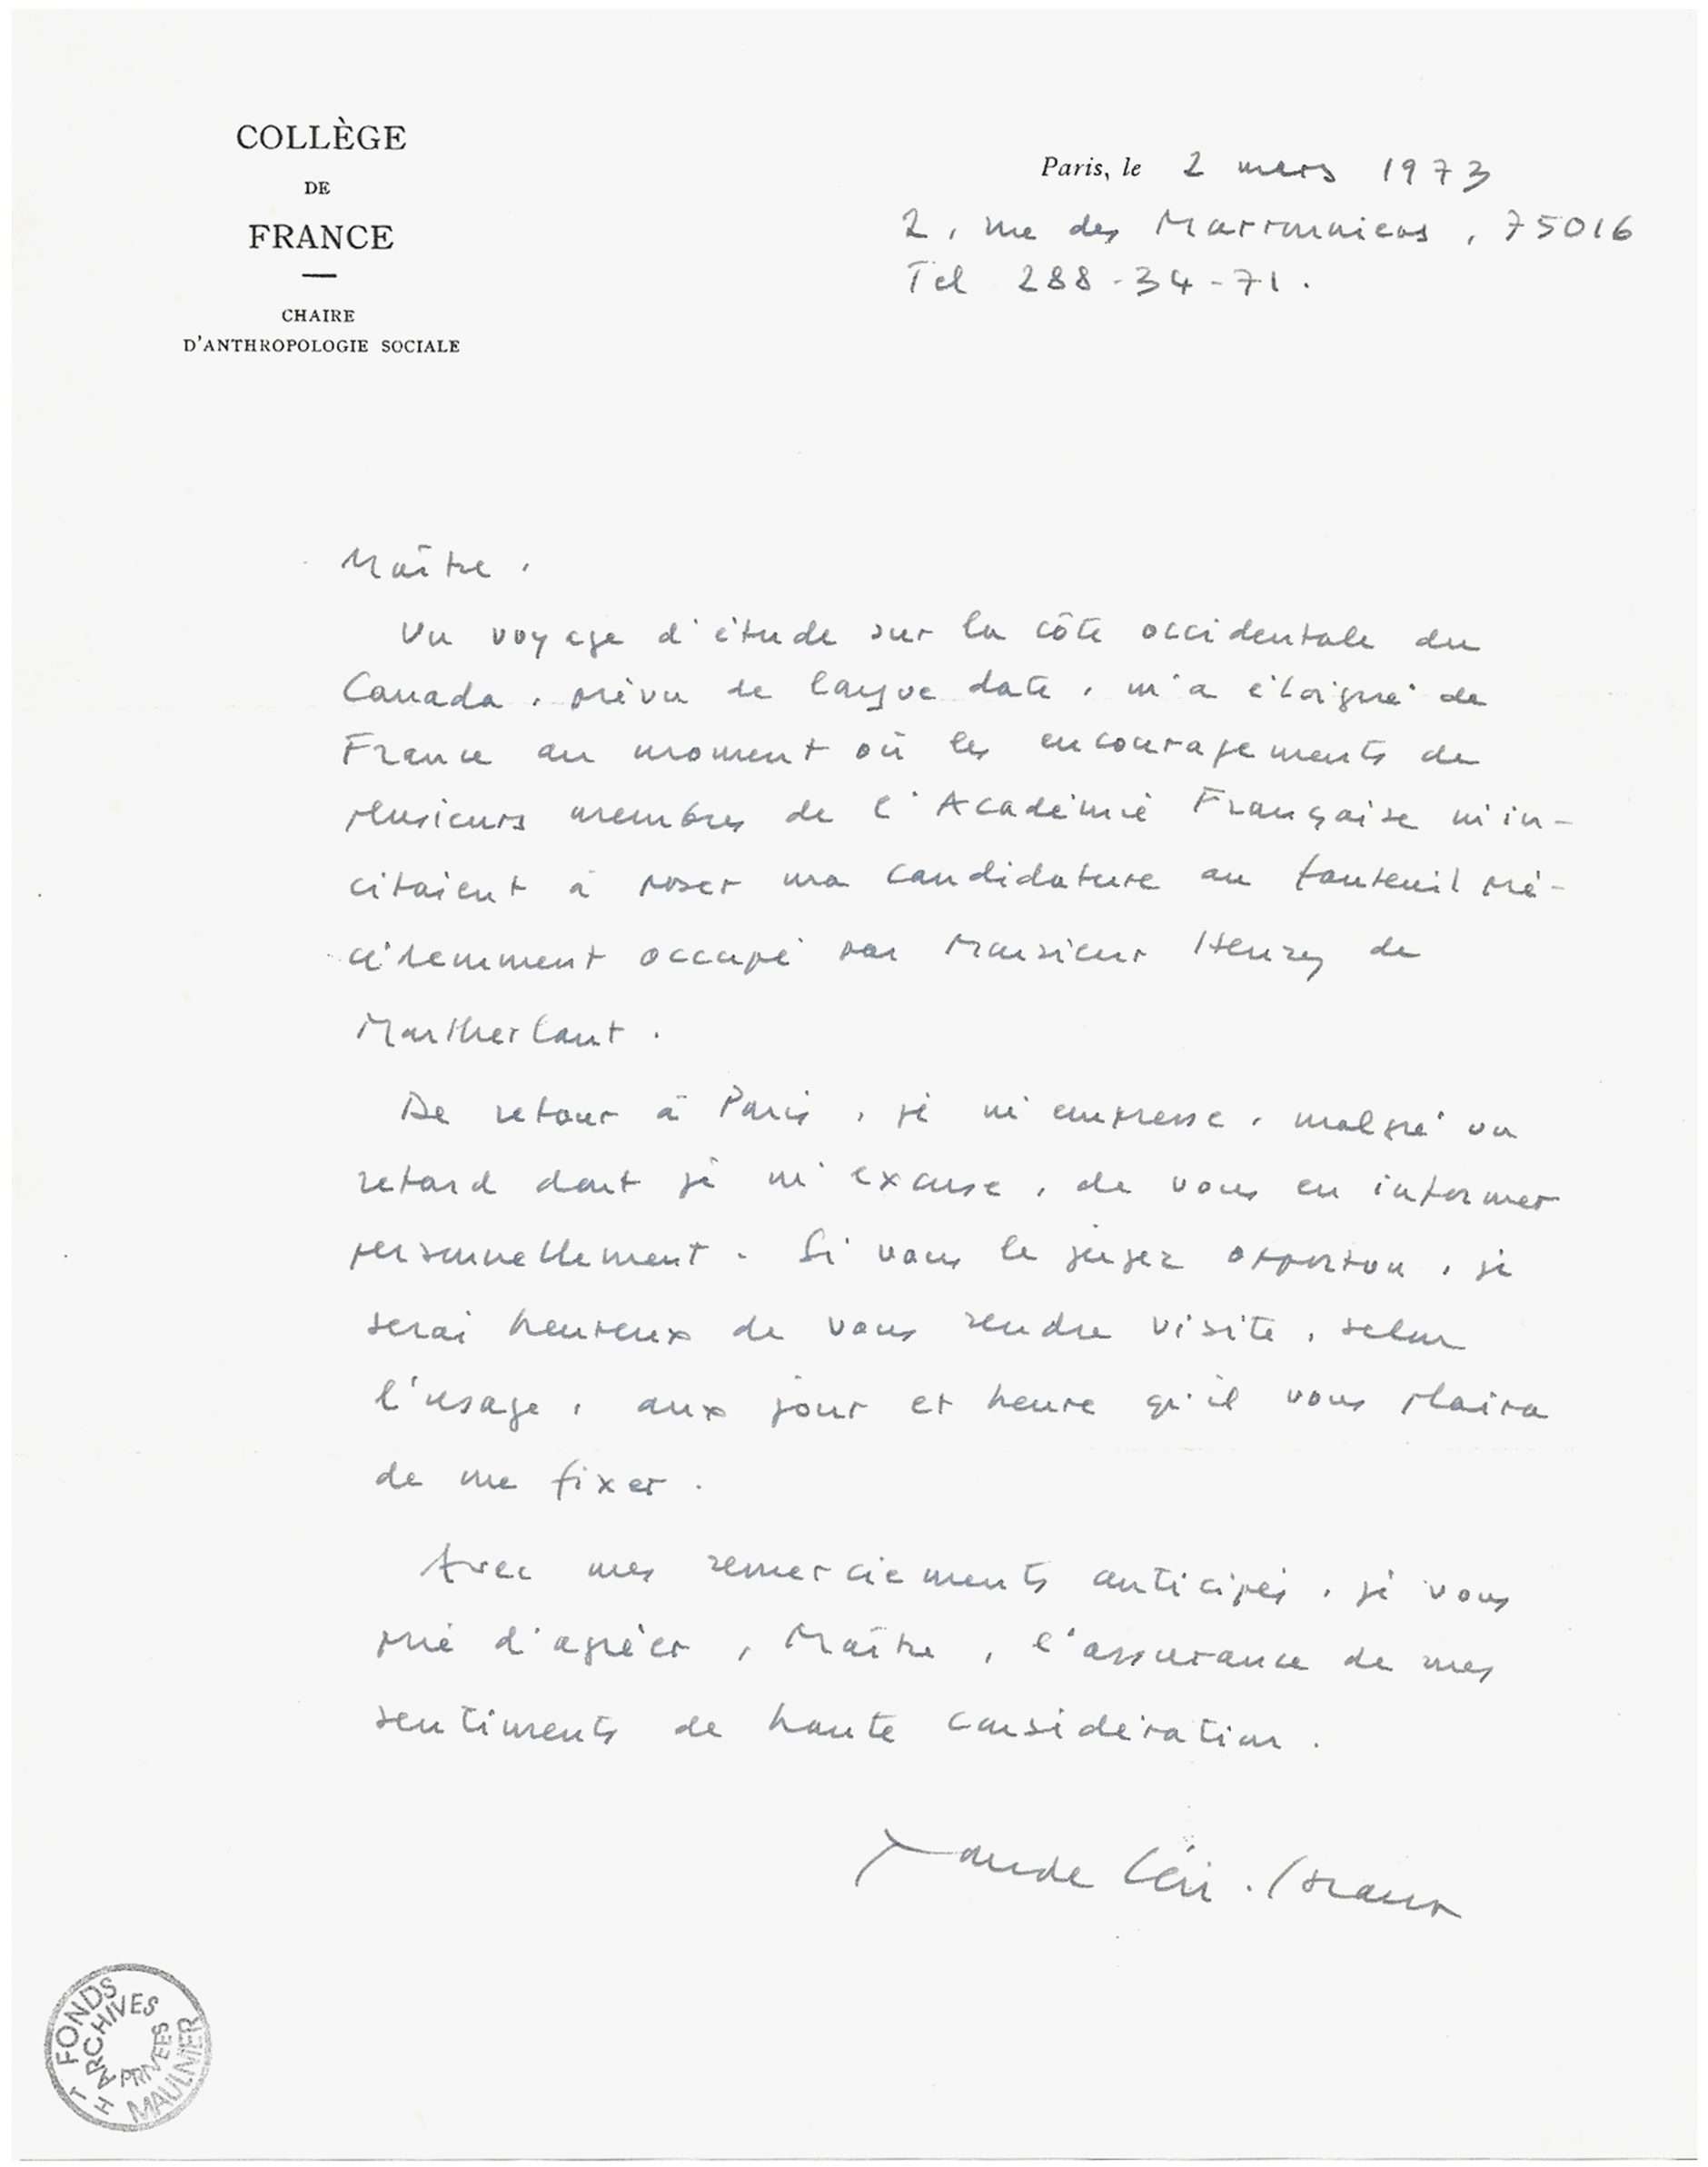 COLLÈGE
DE
FRANCE
CHAIRE
D'ANTHROPOLOGIE SOCIALE
Paris, le 2 mars 1973
2, rue des Marronniers, 75016
Tel 288-34-71.
Maître,
Un voyage d'étude sur la côte occidentale du
Canada, prévu de longue date, m'a éloigné de
France au moment où les encouragements de
plusieurs membres de l'Académie Française m'in-
citaient à poser ma candidature au fauteuil pré-
cédemment occupé par Monsieur Henry de
Montherlant.
De retour à Paris, je m'empresse, malgré un
retard dont je m'excuse, de vous en informer
personnellement. Si vous le jugez opportun, je
serai heureux de vous rendre visite, selon
l'usage, aux jour et heure qu'il vous plaira
de me fixer.
Avec mes remerciements anticipés, je vous
prie d'agréer, Maître, l'assurance de mes
sentiments de haute considération.
Claude Lévi-Strauss
FONDS TH MAULNIER
ARCHIVES PRIVEES